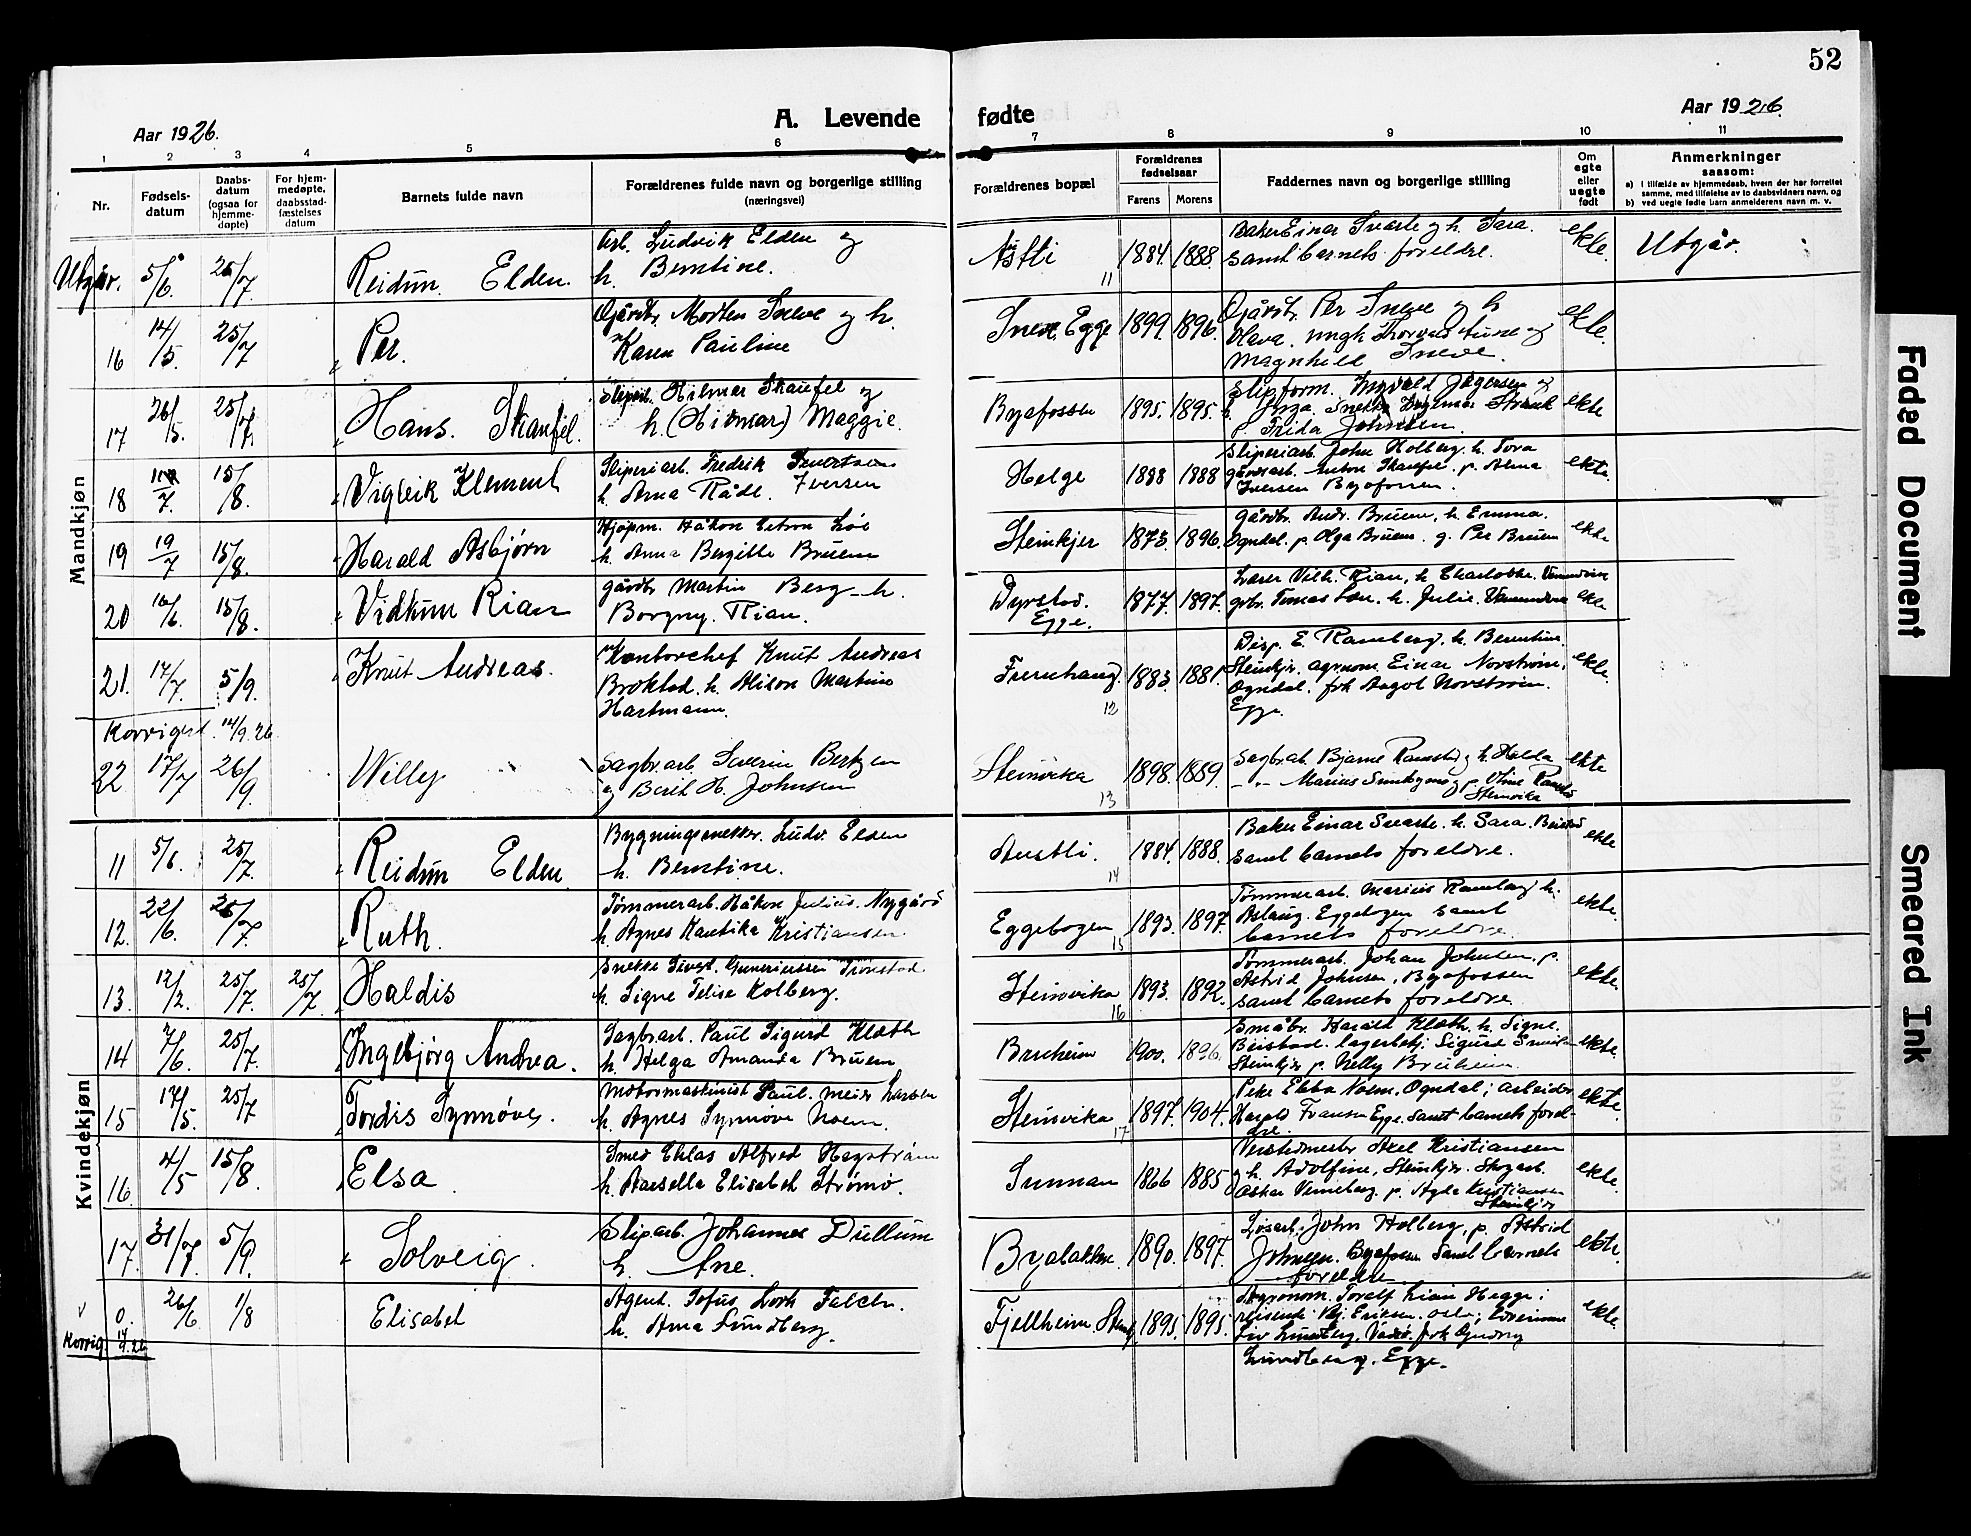 52
Aar 1926.
A. Levende fødte
Aar 1926.
1 2 3 4 5 6 7 8 9 10 11
Nr.
Fødsels-
datum
Daabs-
datum
(ogsaa for
hjemme-
døpte)
For hjem-
medøpte,
daabsstad-
fæstelses
datum
Barnets fulde navn
Forældrenes fulde navn og borgerlige stilling
(næringsvei)
Forældrenes bopæl
Forældrenes
fødselsaar
Farens Morens
Faddernes navn og borgerlig stilling
Om
egte
eller
uegte
født
Anmerkninger
saasom:
a) i tilfælde av hjemmedaab, hvem der har forrettet
samme, med tilføielse av to daabsvidners navn, og
b) ved uegte fødte barn anmelderens navn m. v.
Mandkjøn
Utgår. 5/6. 25/7 Reidun Elden.
Arb. Ludvik Elden og
h. Berntine.
11 1884. 1888.
Baker Einar Svarte og h. Sara.
samt barnets foreldre.
ekte. Utgår.
16 14/5. 25/7 Per.
Gårdbr. Morten Sneve og h.
Karen Pauline
Sneve, Egge 1899. 1896.
Gårdbr. Per Sneve og h
Olava. ungk. Thorvald Aune og
Magnhild Sneve.
ekte.
17 26/5. 25/7. Hans. Skaufel.
Sliperiarb. Hilmar Skaufel og
h. (Hilmar) Maggie.
Byafossen 1895. 1895.
Slipform. Ingvald Jägersen og
h. Inga. Snekker Dagmar Strand
p. Frida Johnsen.
ekte
18 7. 15/8. Vigleik Klement
Sliperiarb. Fredrik
h. Anna Råde. Iversen
Helge 1888 1888
Sliperiarb. John Holberg, h. Tora
gårdarb. Anton Skaufel, p. Alma
Iversen Byafossen.
ekte
19 19/7 15/8. Harald Asbjørn
Kjøpm. Håkon
h. Anna Bergitte Bruem
Steinkjer 1873. 1896.
Gårdbr. Andr. Bruem, h. Emma.
Ogndal. p. Olga Bruem. g. Per Bruem
ekte
20 16/6. 15/8. Vidkun Rian
gårdbr Martin Berg. h.
Borgny. Rian.
Dyrstad.
Egge.
1877. 1897.
Lærer Vilh. Rian, h. Charlotte.
grbr. Tomas h. Julie.
ekte
21. 17/7. 5/9. Knut Andreas.
Kontorchef Knut Andreas
Brokstad. h. Alison Martine
Hartmann.
12 1883. 1881.
Disp. E. Ramberg, h. Berntine
Steinkjer. agronom Einar Norstrøm,
Ogndal. frk Aagot Norstrøm.
Egge.
ekte.
Korrigert 14/9.26
22 17/7 26/9. Willy
Sagbr.arb. Severin Bertzen
og Berit H. Johnsen
Steinvika 13 1898. 1889.
Sagbr.arb Bjarne Ramstad og h. Hilda
Steinvika
ekte
Kvindekjøn
11 5/6. 25/7. Reidun Elden
Bygningssnekker. Ludv. Elden
h. Berntine.
Austli. 14 1884. 1888.
Baker Einar Svarte. h. Sara. Beistad
samt barnets foreldre.
ekte
12. 22/6. 25/7. Ruth.
Tømmerarb. Håkon Julius. Nygård
h. Agnes Kristiansen.
Eggebogen 15 1893. 1897.
Tømmerarb. Marius Ramberg h.
Aslaug. Eggebogen samt
barnets foreldre.
ekte.
13. 12/2. 25/7. 25/7. Haldis
Snekker Sivert. Gunneriussen Tronstad.
h. Signe Kolberg.
Steinvika 16 1893. 1892.
Tømmerarb. Johan Johnsen, p.
Astrid Johnsen, Byafossen
samt barnets foreldre
ekte.
14 7/6. 25/7. Ingebjørg Andrea.
Sagbr.arb. Paul Sigurd Klæth
h. Helga Amanda Bruem
Brueheim 1900. 1896.
Småbr. Harald Klæth. h. Signe.
Beistad. lagerbetj. Sigurd
Steinkjer p. Nelly Brueheim.
ekte.
15 17/5. 25/7 Tordis Synnøve.
Motormaskinist Paul. Meier Larsen
h. Agnes Synnøve Noem.
Steinvika 17 1897. 1904.
Pike Ebba Noem, Ogndal; arbeider
Harald Fransen Egge. samt barnets forel-
dre.
ekte.
16. 4/5 15/8. Elsa
Smed Elilas Alfred Hagstrøm
h. Elisabeth Strømø.
Sunnan 1866 1885
Verkstedmester Axel Kristiansen
og h. Adolfine, Steinkjer. Skogarb.
Oskar p. Agda Kristiansen
Steinkjer
ekte.
17. 31/7. 5/9. Solveig.
Sliparb. Johannes Dullum
h. Ane.
Byabakken 1890. 1897.
Løsarb. John Holberg, p. Astrid
Johnsen. Byafossen samt barnets
foreldre
ekte.
0. 26/6 1/8 Elisabet
Agent. Tofus Lork Falch.
h. Anna Lundberg.
Fjellheim. 1895. 1895.
Agronom. Toralf Lian Hegge;
reisende Bj. Eriksen. Oslo;
Liv Lundberg, Vadsø. frk
Lundberg. Egge.
ekte.
Korrig.
Faded Document
Smeared Ink